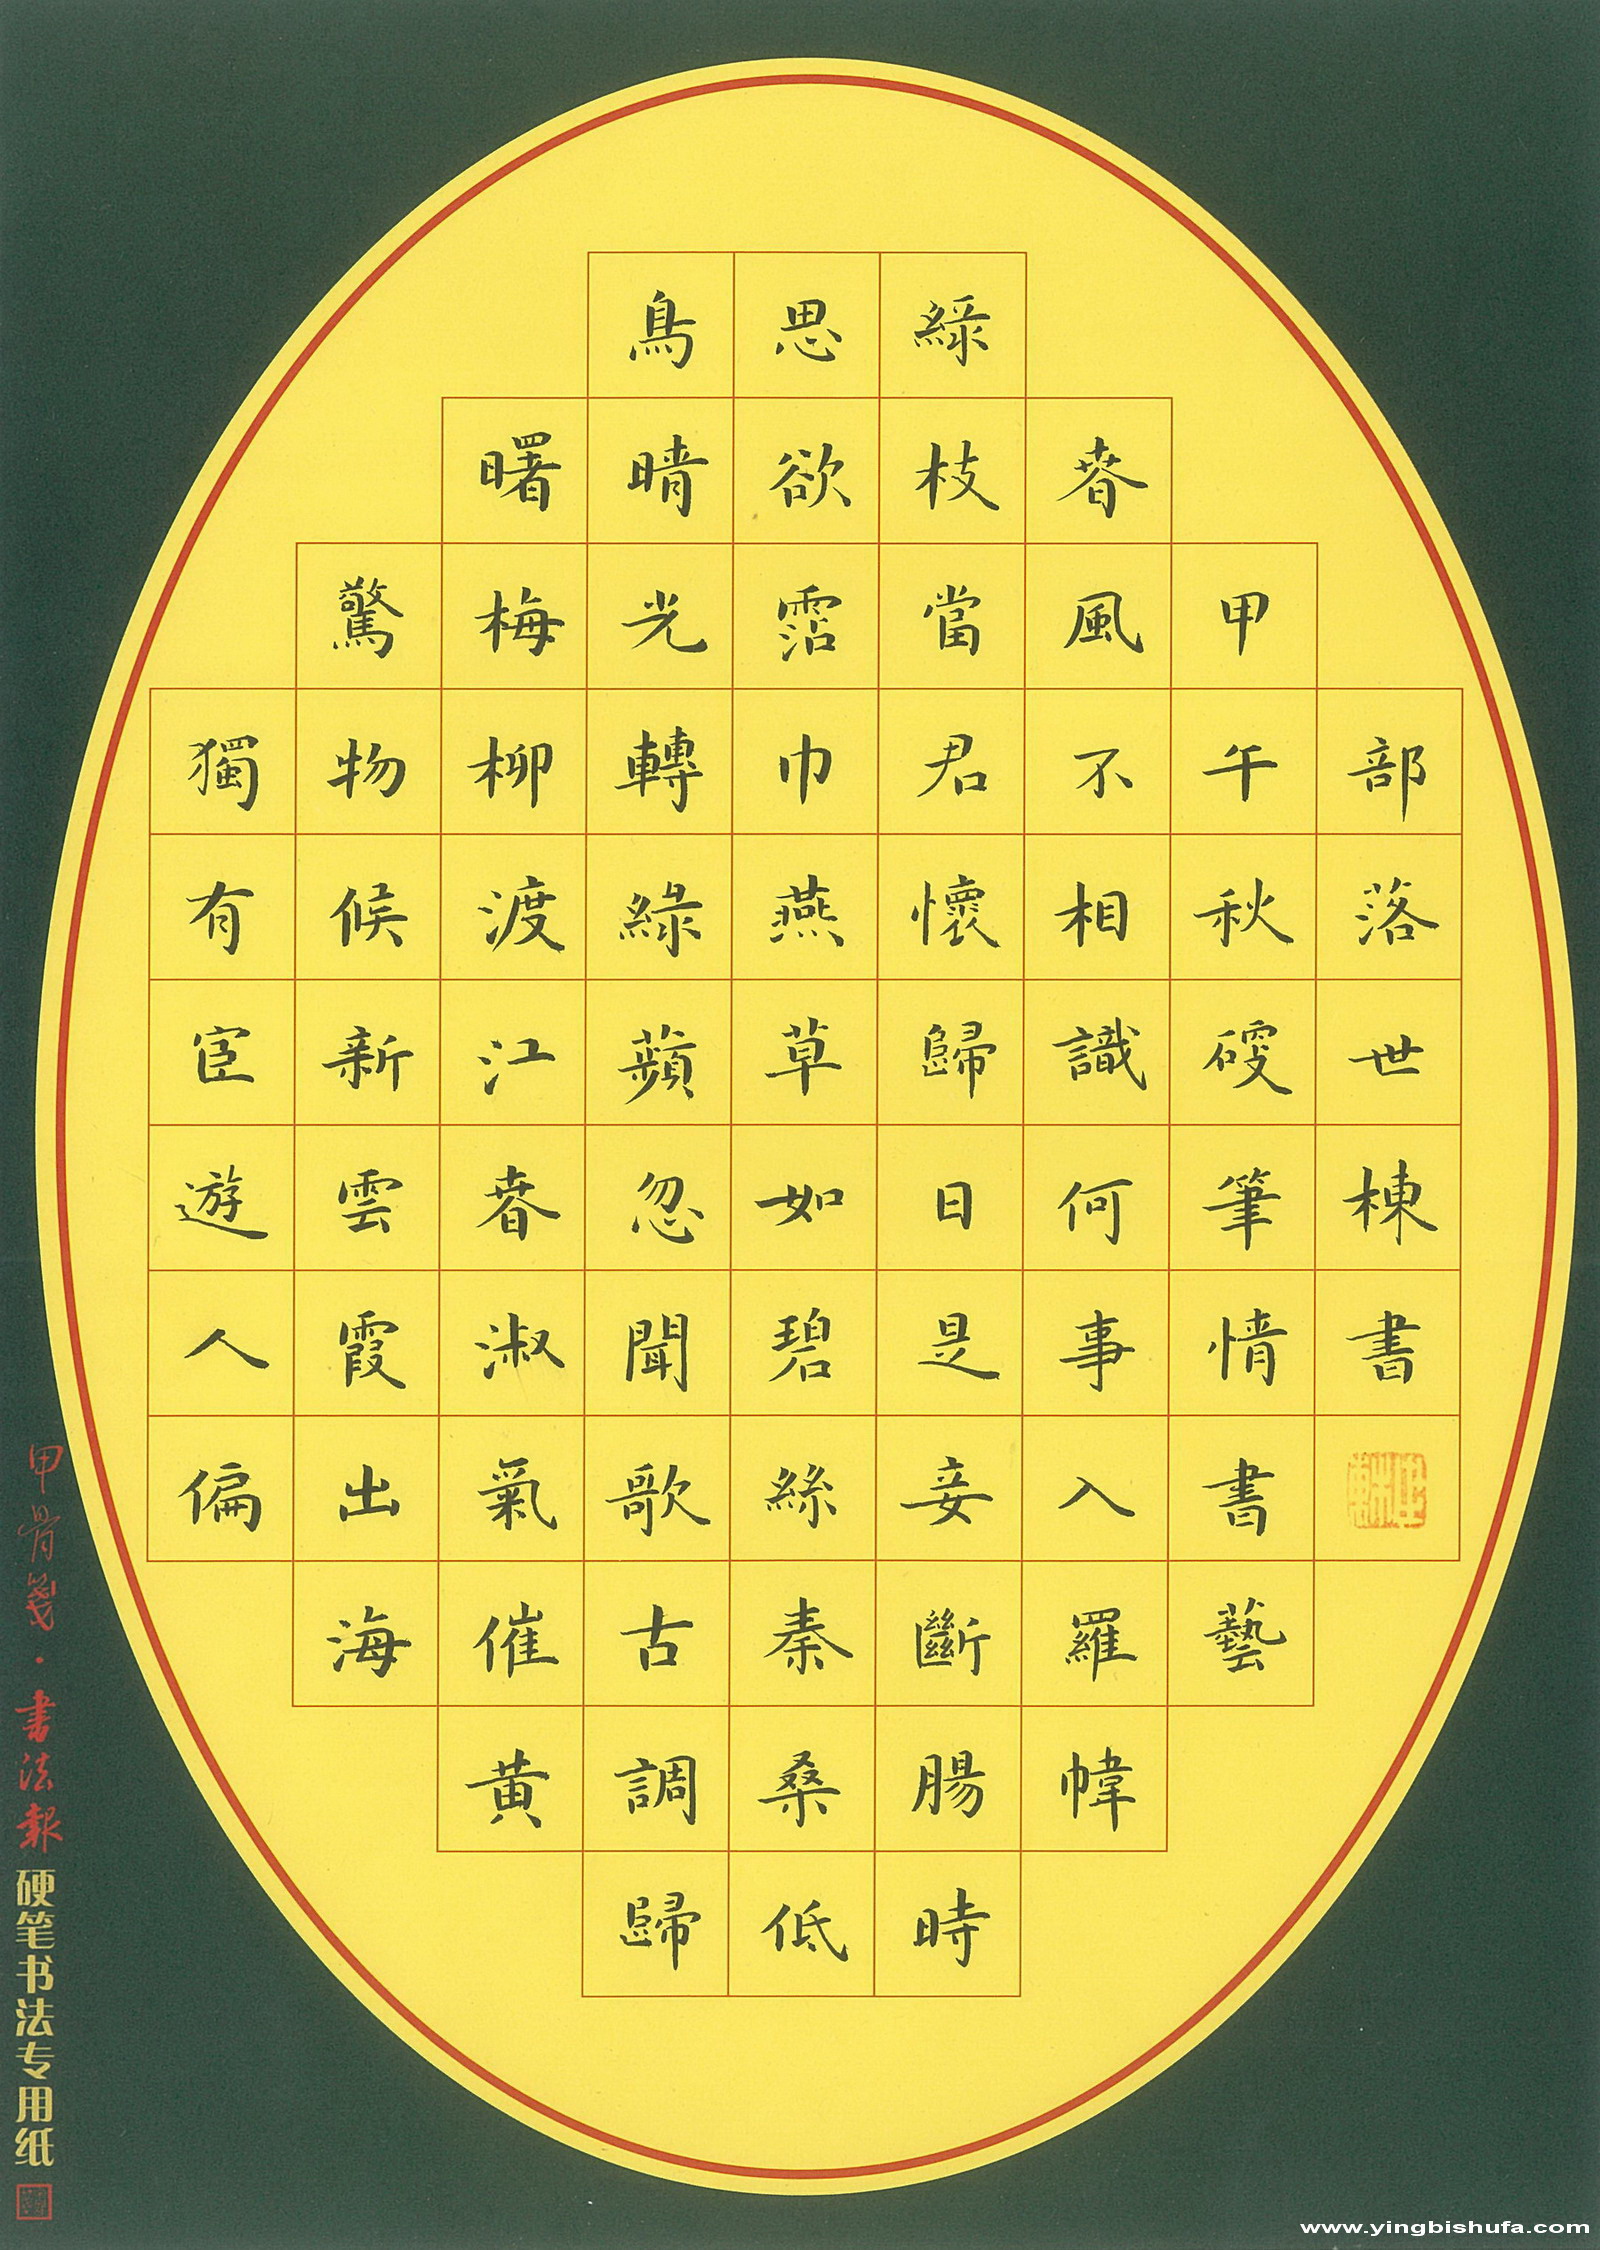 獨有宦遊人偏
驚物候新雲霞出海
曙梅柳渡江春淑氣催黃
鳥晴光轉綠蘋忽聞歌古調歸
思欲霑巾燕草如碧絲秦桑低
綠枝當君懷歸日是妾斷腸時
春風不相識何事入羅幃
甲午秋硬筆情書藝
部落世棟書
甲骨箋·書法報硬笔书法专用纸
www.yingbishufa.com